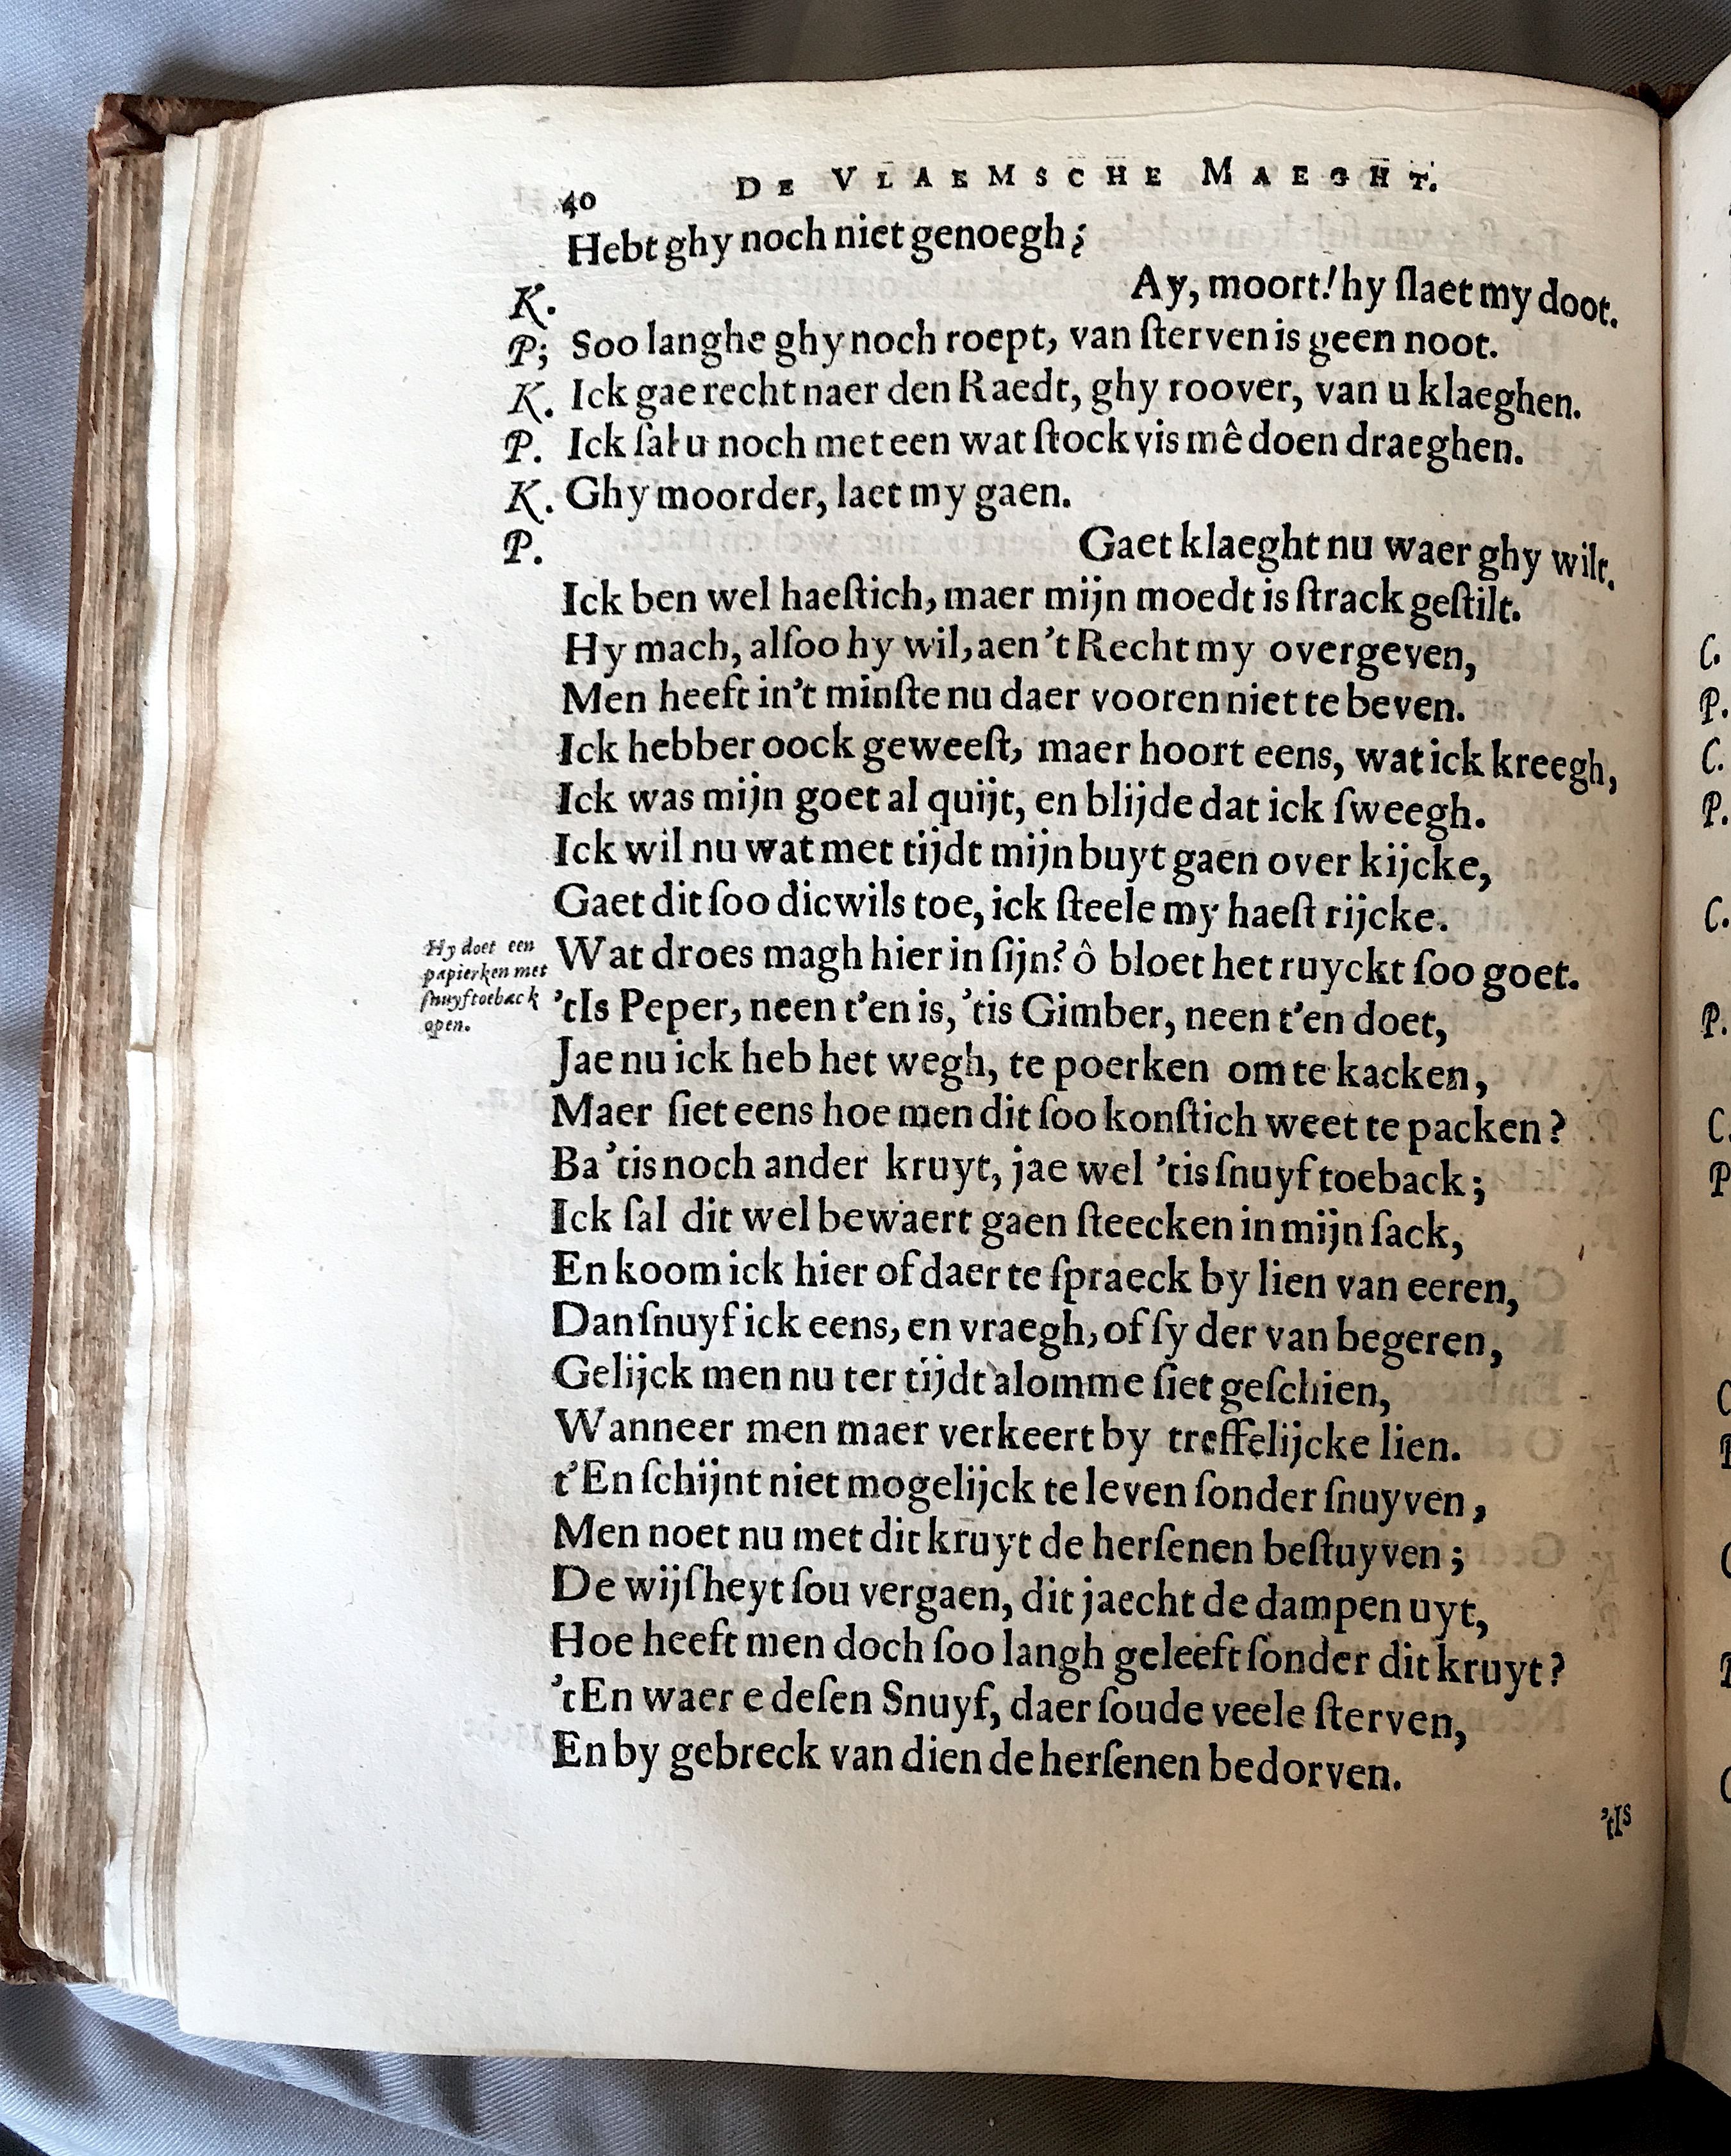 40 DE VLAEMSCHE MAEGHT.
Hebt ghy noch niet genoegh;
K. Ay, moort! hy ſlaet my doot.
P; Soo langhe ghy noch roept, van ſterven is geen noot.
K. Ick gae recht naer den Raedt, ghy roover, van u klaeghen.
P. Ick ſal u noch met een wat ſtockvis mê doen draeghen.
K. Ghy moorder, laet my gaen.
P. Gaet klaeght nu waer ghy wilt.
Ick ben wel haeſtich, maer mijn moedt is ſtrack geſtilt.
Hy mach, alſoo hy wil, aen 't Recht my overgeven,
Men heeft in't minſte nu daer vooren niet te beven.
Ick hebber oock geweeſt, maer hoort eens, wat ick kreegh,
Ick was mijn goet al quijt, en blijde dat ick ſweegh.
Ick wil nu wat met tijdt mijn buyt gaen over kijcke,
Gaet dit ſoo dicwils toe, ick ſteele my haeſt rijcke.
Hy doet een
papierken met
ſnuyftoeback
open.
Wat droes magh hier in ſijn? ô bloet het ruyckt ſoo goet.
'tIs Peper, neen t'en is, 'tis Gimber, neen t'en doet,
Jae nu ick heb het wegh, te poerken om te kacken,
Maer ſiet eens hoe men dit ſoo konſtich weet te packen?
Ba 'tis noch ander kruyt, jae wel 'tis ſnuyf toeback;
Ick ſal dit wel bewaert gaen ſteecken in mijn ſack,
En koom ick hier of daer te ſpraeck by lien van eeren,
Dan ſnuyf ick eens, en vraegh, of ſy der van begeren,
Gelijck men nu ter tijdt alomme ſiet geſchien,
Wanneer men maer verkeert by treffelijcke lien.
t'En ſchijnt niet mogelijck te leven ſonder ſnuyven,
Men noet nu met dit kruyt de herſenen beſtuyven;
De wijſheyt ſou vergaen, dit jaecht de dampen uyt,
Hoe heeft men doch ſoo langh geleeft ſonder dit kruyt?
'tEn waer e deſen Snuyf, daer ſoude veele ſterven,
En by gebreck van dien de herſenen bedorven.
'tIs
C.
P.
C.
P.
C.
P.
C.
P